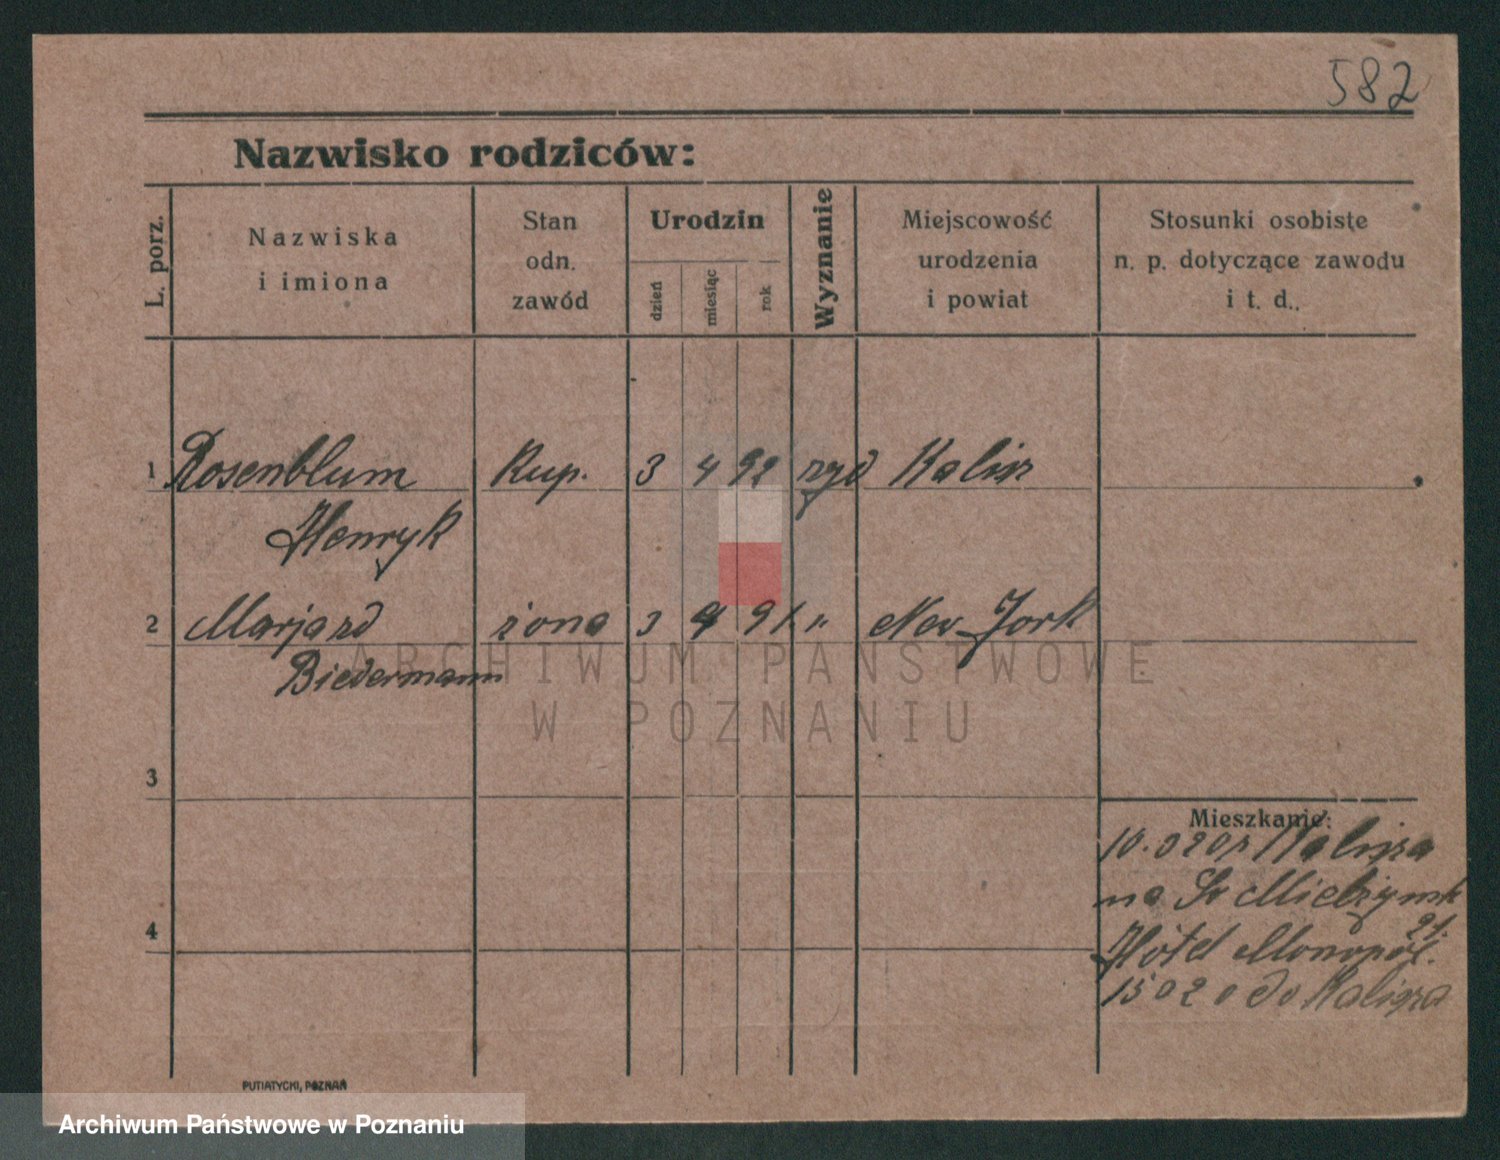 582
Nazwisko rodziców:
L. porz.
Nazwiska
i imiona
Stan
odn.
zawód
Urodzin
dzień
miesiąc
rok
Wyznanie
Miejscowość
urodzenia
i powiat
Stosunki osobiste
n. p. dotyczące zawodu
i t. d.,
1 Rosenblum Kup. 3 4 92 żyd Kalisz
Henryk
2 Marja żona 3 4 91 " New Jork
Biedermann
3
4
Mieszkanie:
10.020 z Kalisza
na Św Mielżyńsk
21.
Hôtel Monopol.
15 02 0 do Kalisza
PUTIATYCKI, POZNAŃ
ARCHIWUM PAŃSTWOWE
W POZNANIU
Archiwum Państwowe w Poznaniu